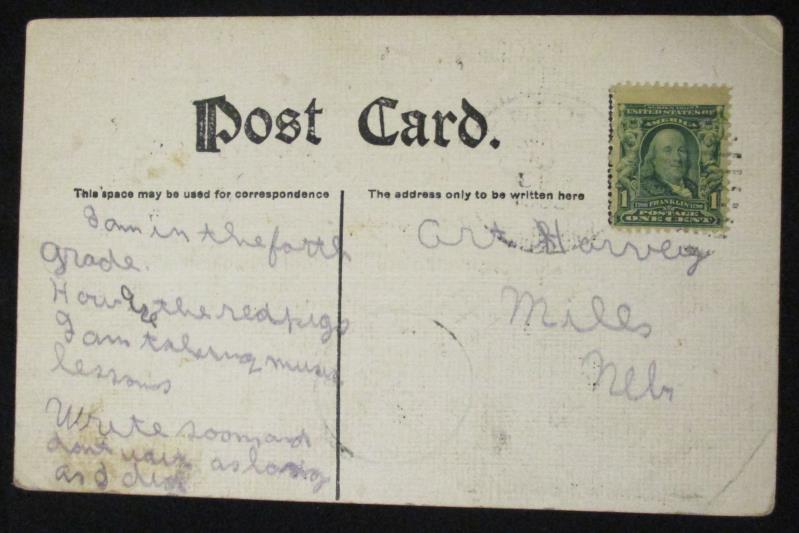 Post Card.
This space may be used for correspondence
The address only to be written here
UNITED STATES OF
AMERICA
1
1
FRANKLIN
POSTAGE
ONE CENT
I am in the forth
grade.
How are the red pigs
I am takeing music
lessons
Write soon and
dont wait as long
as I did
Art Harvey
Mills
Nebr